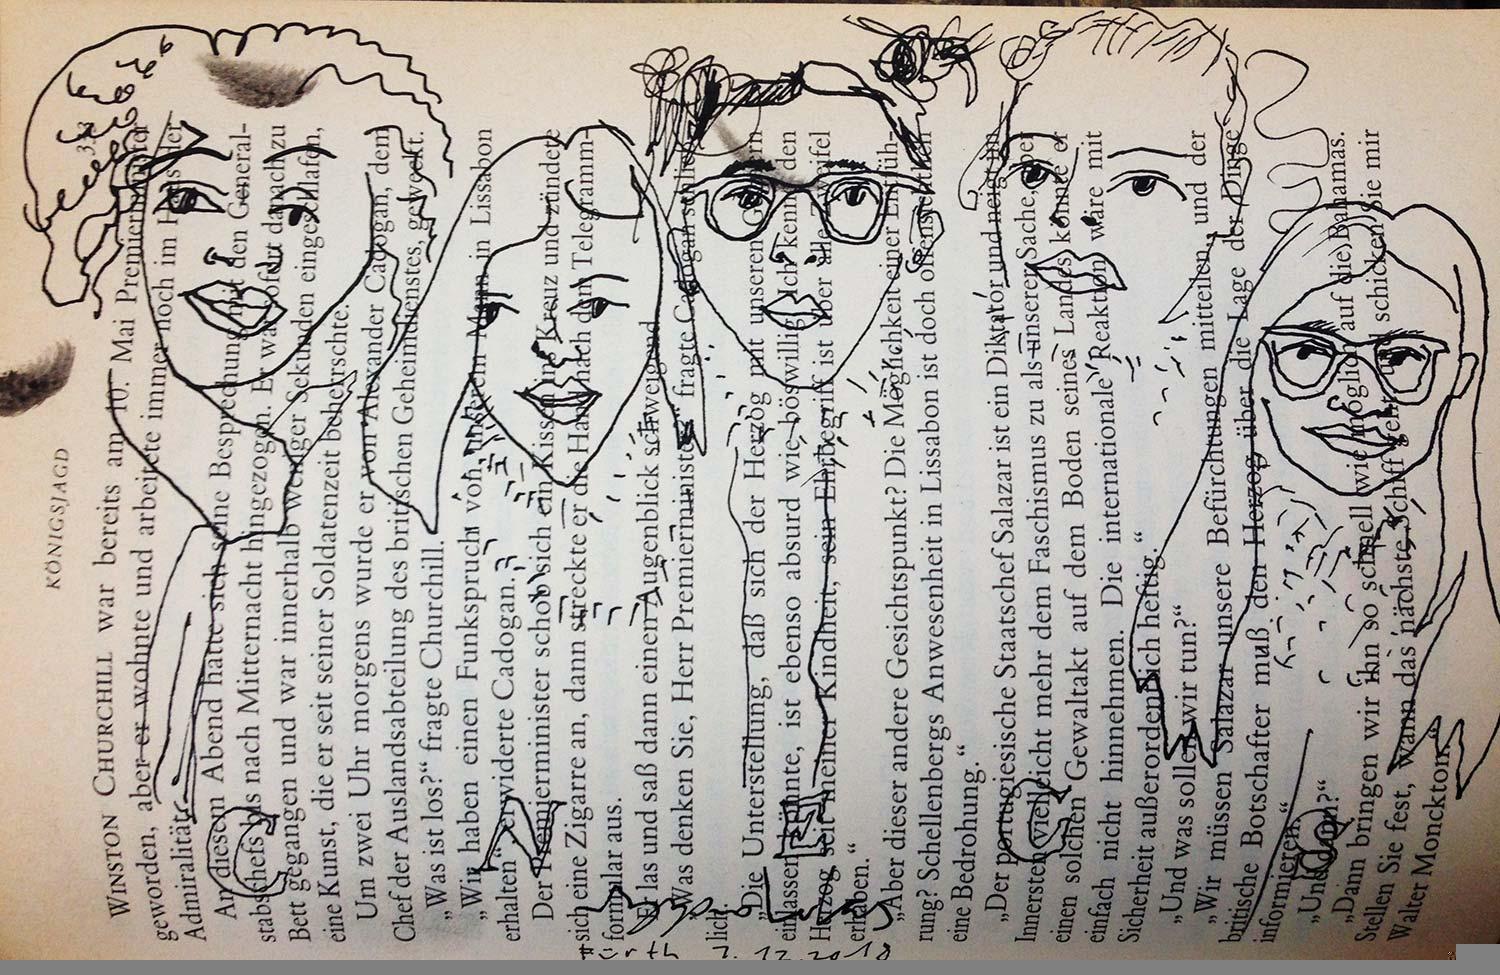 KÖNIGSJAGD
333
WINSTON CHURCHILL war bereits am 10. Mai Premierminister
geworden, aber er wohnte und arbeitete immer noch im Haus der
Admiralität.
An diesem Abend hatte sich seine Besprechung mit den General-
stabschefs bis nach Mitternacht hingezogen. Er war sofort danach zu
Bett gegangen und war innerhalb weniger Sekunden eingeschlafen,
eine Kunst, die er seit seiner Soldatenzeit beherrschte.
Um zwei Uhr morgens wurde er von Alexander Cadogan, dem
Chef der Auslandsabteilung des britischen Geheimdienstes, geweckt.
„Was ist los?“ fragte Churchill.
„Wir haben einen Funkspruch von unserem Mann in Lissabon
erhalten“, erwiderte Cadogan.
Der Premierminister schob sich ein Kissen ins Kreuz und zündete
sich eine Zigarre an, dann streckte er die Hand nach dem Telegramm-
formular aus.
Er las und saß dann einen Augenblick schweigend.
„Was denken Sie, Herr Premierminister“ fragte Cadogan schließ-
lich.
„Die Unterstellung, daß sich der Herzog mit unseren
einlassen könnte, ist ebenso absurd wie böswillig. Ich kenne den
Herzog seit meiner Kindheit, sein Ehrbegriff ist über alle Zweifel
erhaben.“
„Aber dieser andere Gesichtspunkt? Die Möglichkeit einer Entfüh-
rung? Schellenbergs Anwesenheit in Lissabon ist doch offensichtlich
eine Bedrohung.“
„Der portugiesische Staatschef Salazar ist ein Diktator und neigt im
Innersten vielleicht mehr dem Faschismus zu als unserer Sache, aber
einen solchen Gewaltakt auf dem Boden seines Landes könnte er
einfach nicht hinnehmen. Die internationale Reaktion wäre mit
Sicherheit außerordentlich heftig.“
„Und was sollen wir tun?“
„Wir müssen Salazar unsere Befürchtungen mitteilen, und der
britische Botschafter muß den Herzog über die Lage der Dinge
informieren.“
„Und dann?“
„Dann bringen wir ihn so schnell wie möglich auf die Bahamas.
Stellen Sie fest, wann das nächste Schiff geht und schicken Sie mir
Walter Monckton.“
Fürth 2.12.2018